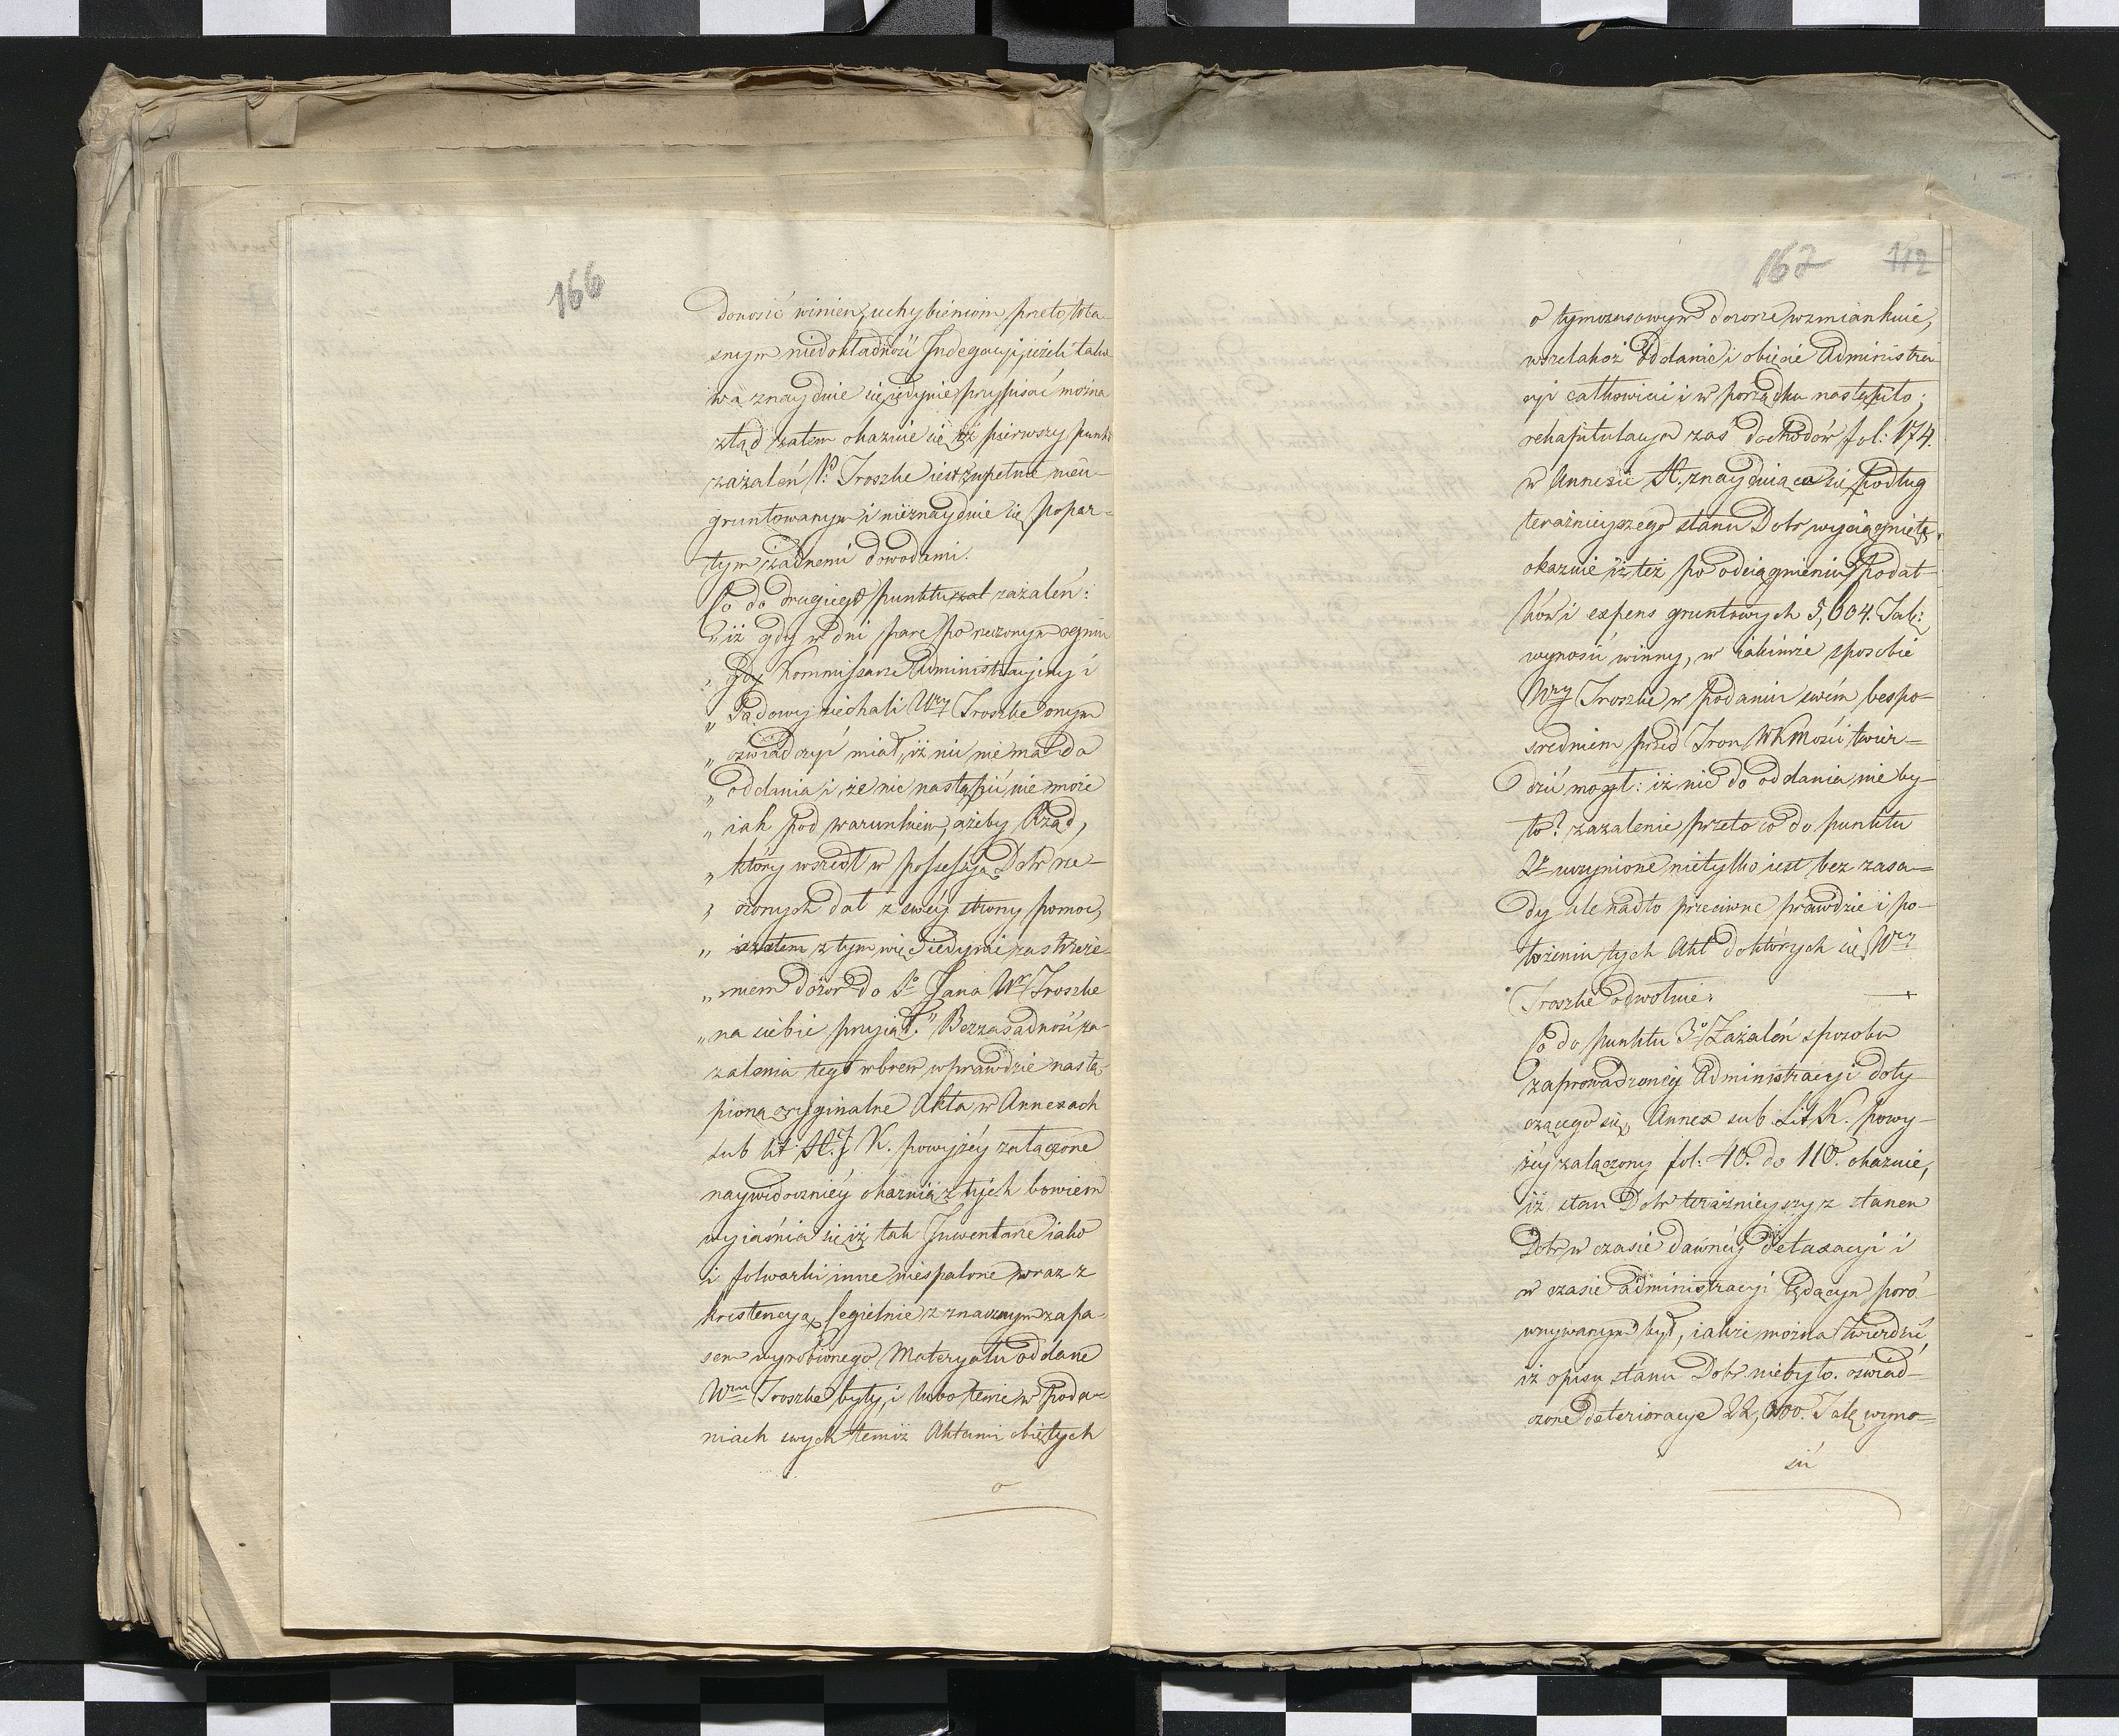 166
donosić winien, uchybieniom, przeto, wła-
snym niedokładność Indegacyi, ieżeli tako-
wa znayduie się, iedynie przypisać można
ztąd zatem okazuie się iż pierwszy punkt
zażaleń P. Troszke iest zupełnie nieu-
gruntowanym i nieznayduie się popar-
tym żadnemi dowodami.
Co do drugiego punktu zażaleń:
„iż gdy w dni parę po rzeczonym ogniu
„ gdy Kommissarze Administracyiny i
„ Sądowy ziechali Wny Troszke onym
„ oświadczyć miał, iż nic niema do
„ oddania i, że nic nastąpić nie może
„ iak pod warunkiem, ażeby Rząd,
„ który wszedł w possessyą Dobr rze-
„ czonych dał z swéy strony pomoc,
„ z tym więc iedynie zastrzeże-
„niem dozór do Jana Wny Troszke
„na siebie przyiął." Bezzasadność za-
żalenia tego wbrew prawdzie nastą-
pioną oryginalne Akta w Annexach
sub Lit H. J. K. powyżéy załączone
naywidoczniéy okazuią z tych bowiem
wyiaśnia się iż tak Inwentarze iako
i folwarki inne niespalone wraz z
krestencyą, Cegielnie z znacznym zapa-
sem wyrobionego Materyału oddane
Wmu Troszke były, i lubo tenże w poda-
niach swych temiż Aktami obiętych
o
167 112
o tymczasowym dozorze wzmiankuie,
wszelakoż oddanie i obięcie Administra-
cyi całkowicie i w porządku nastąpiło;
rekapitulacya zaś dochodów fol: 174.
w Annexie H. znayduiąca się podług
teraźnieyszego stanu Dobr wyciągnięta,
okazuie iż też po odciągnieniu podat-
ków i expens gruntowych 5,604. Tal:
wynosić winny, w iakimże sposobie
Wny Troszke w podaniu swém bespo-
sredniem przed Tron WKMości twier-
dzić mógł: iż nic do oddania nie by-
ło? zażalenie przeto co do punktu
2go uczynione nietylko iest bez zasa-
dy ale nadto przeciwne prawdzie i po-
łożeniu tych Akt do których się Wny
Troszke odwołuie.
Co do punktu 3o Zażaleń sposobu
zaprowadzonéy Administracyi doty-
czącego się, Annex sub Lit K. powy-
żéy załączony fol: 40. do 110. okazuie,
iż stan Dobr teraźnieyszy z stanem
Dobr w czasie dawnéy detaxacyi i
w czasie administracyi będącym poró-
wnywanym był, iakże można twierdzić,
iż opisu stanu Dobr niebyło. oświad-
czone deterioracye 22,000. Tal, wyno-
sić